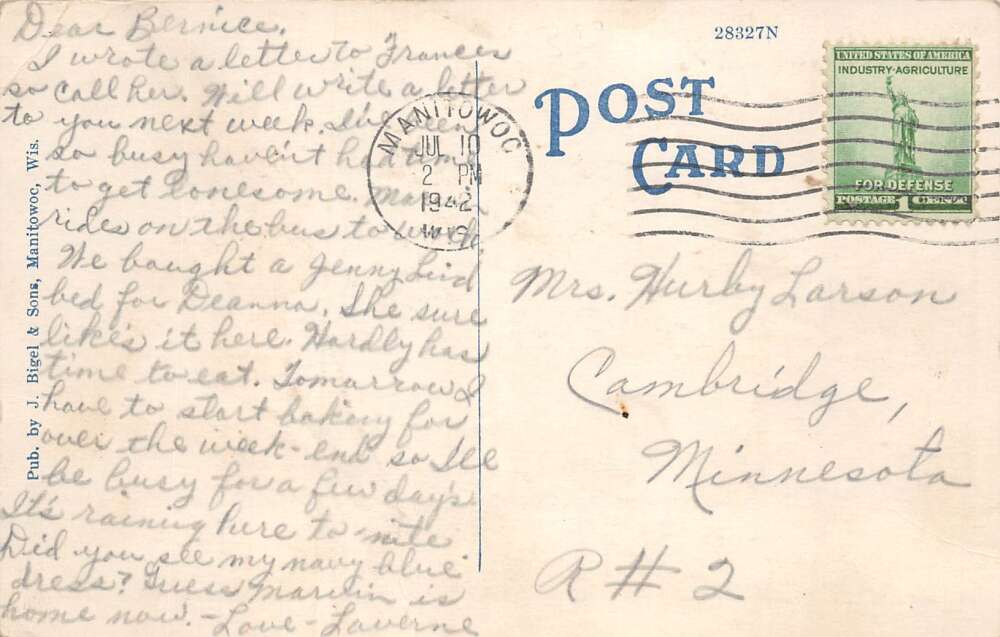 Dear Bernice,
I wrote a letter to Frances
so call her. Will write a letter
to you next week. I've been
so busy haven't had time
to get lonesome. Marvin
rides on the bus to work
We bought a Jenny Lind
bed for Deanna. She sure
like's it here. Hardly has
time to eat. Tomorrow I
have to start baking for
over the week-end so I'll
be busy for a few day's
It's raining here to-nite
Did you see my navy blue
dress? Guess Marvin is
home now. - Love - Laverne
Pub. by J. Bigel & Sons, Manitowoc, Wis.
28327N
POST
CARD
MANITOWOC
JUL 10
2 PM
1942
WIS
UNITED STATES OF AMERICA
INDUSTRY·AGRICULTURE
FOR DEFENSE
POSTAGE 1 CENT
Mrs. Hurby Larson
Cambridge,
Minnesota
R#2